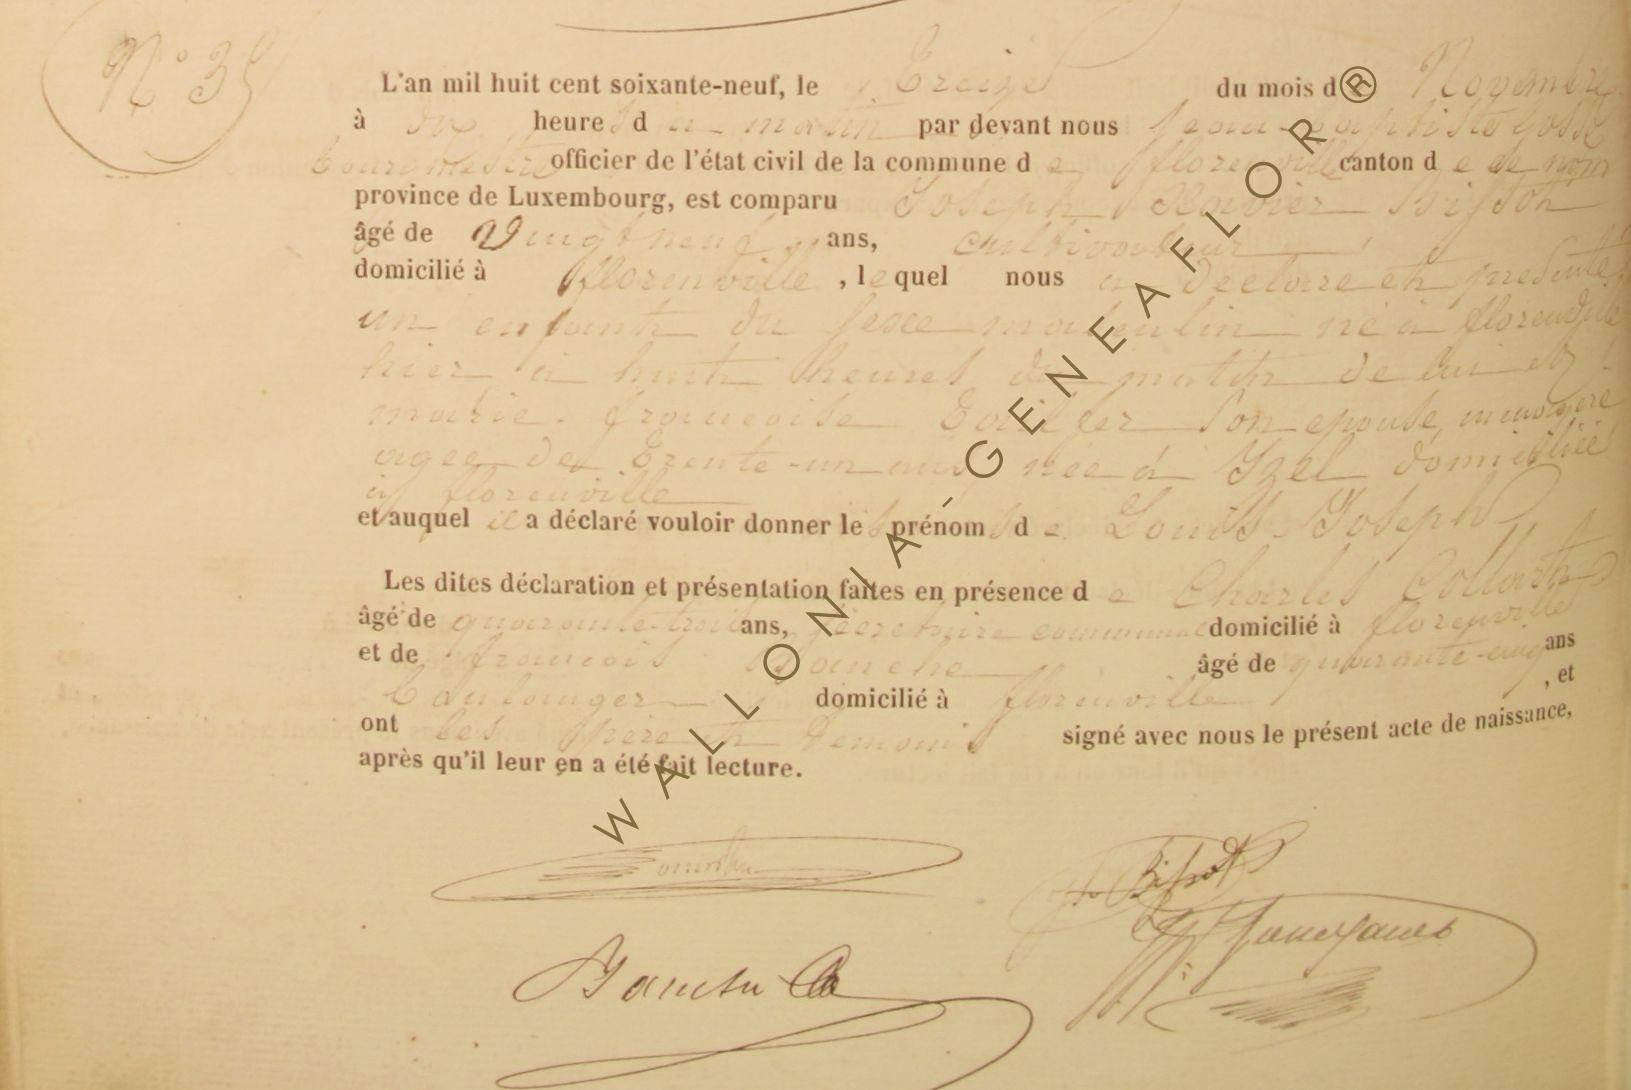 N° 35
L'an mil huit cent soixante-neuf, le Treize du mois d Novembre
à dix heures du matin par devant nous jean-baptiste
bourgmestre officier de l'état civil de la commune de florenville canton de de nom
province de Luxembourg, est comparu Joseph Xavier
âgé de Vingt neuf ans, cultivateur
domicilié à florenville, lequel nous a declare et presenté
un enfant du sexe masculin né à florenville
hier à huit heures du matin de lui et
marie françoise son epouse, menagere
agée de trente-un ans née à Izel domiciliée
à florenville
et auquel il a déclaré vouloir donner les prénoms de Louis Joseph
Les dites déclaration et présentation faites en présence de Charles Collart
âgé de quarante-trois ans, secretaire communal domicilié à florenville
et de françois âgé de quarante-cinq ans
boulanger domicilié à florenville, et
ont les père et temoins signé avec nous le présent acte de naissance,
après qu'il leur en a été fait lecture.
WALLONIA-GENEAFLOR®